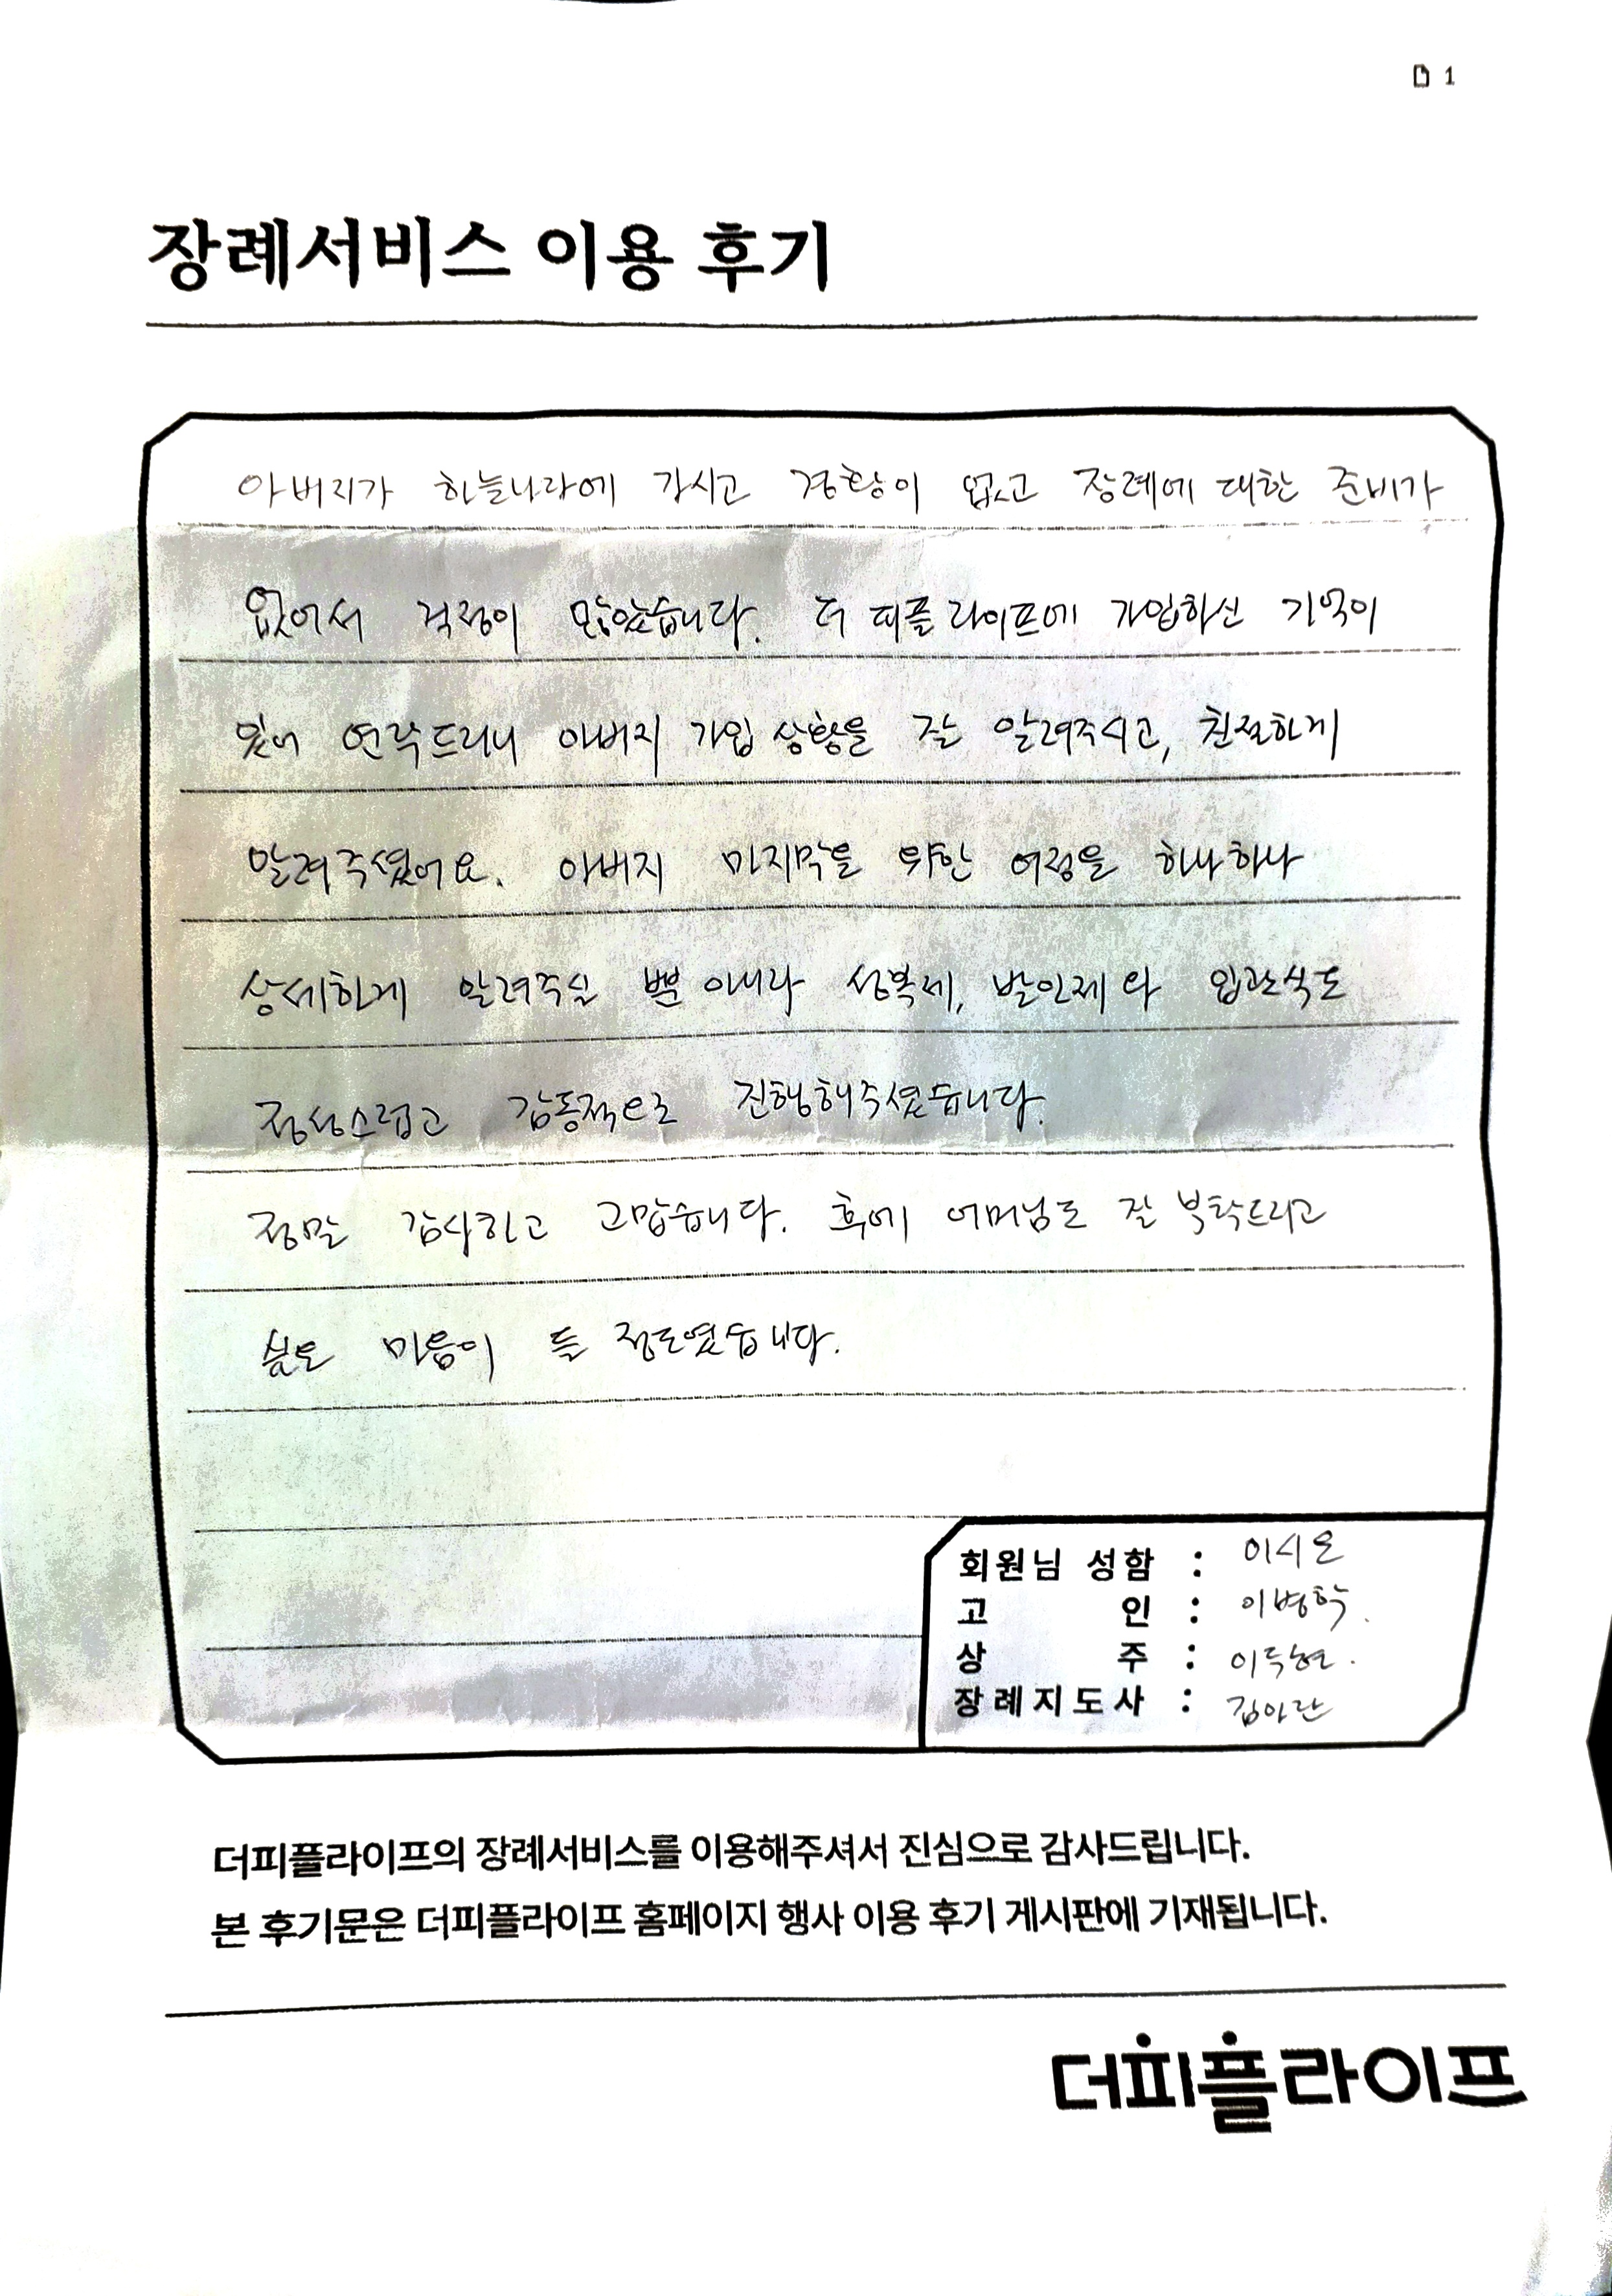 1
장례서비스 이용 후기
아버지가 하늘나라에 가시고 경황이 없고 장례에 대한 준비가
없어서 걱정이 많았습니다. 더 피플 라이프에 가입하신 기억이
있어 연락드리니 아버지 가입 상황을 잘 알려주시고, 친절하게
알려주셨어요. 아버지 마지막을 위한 여정을 하나하나
상세하게 알려주실 뿐 아니라 성복제, 발인제와 입관식도
정성스럽고 감동적으로 진행해주셨습니다.
정말 감사하고 고맙습니다. 후에 어머님도 잘 부탁드리고
싶은 마음이 들 정도였습니다.
회원님 성함 : 이시온
고 인 : 이병학.
상 주 : 이득현.
장례지도사 : 김아란
더피플라이프의 장례서비스를 이용해주셔서 진심으로 감사드립니다.
본 후기문은 더피플라이프 홈페이지 행사 이용 후기 게시판에 기재됩니다.
더피플라이프